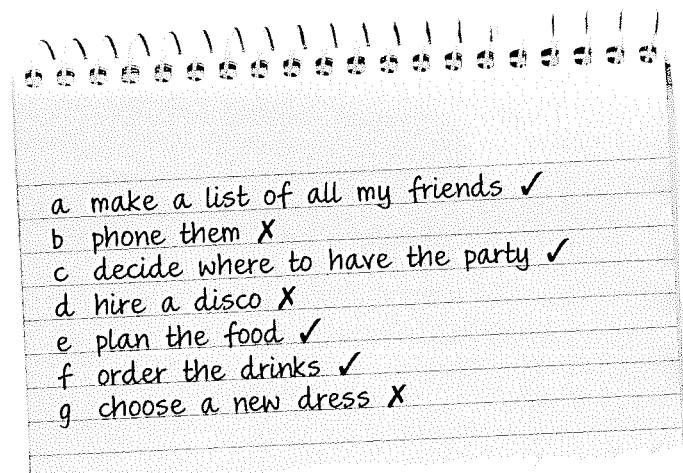 a make a list of all my friends ✓
b phone them ✗
c decide where to have the party ✓
d hire a disco ✗
e plan the food ✓
f order the drinks ✓
g choose a new dress ✗